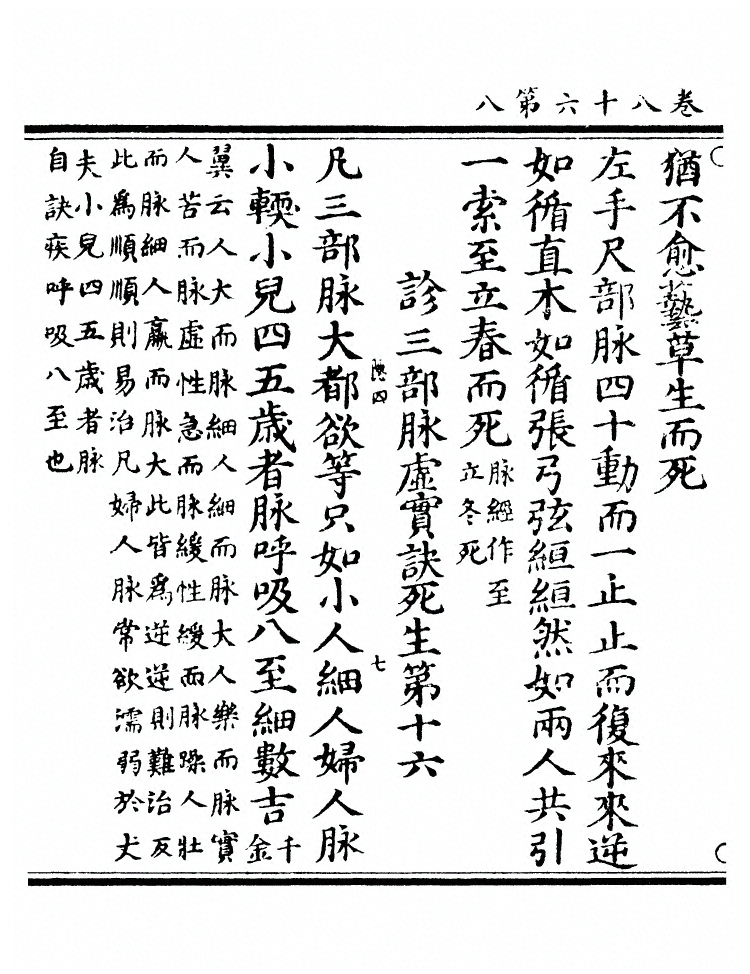 卷八十六第八
猶不愈藝草生而死
左手尺部脉四十動而一止止而復來來逆
如循直木如循張弓弦絙絙然如兩人共引
一索至立春而死
脉經作至
立冬死
診三部脉虛實訣死生第十六
四
七
凡三部脉大都欲等只如小人細人婦人脉
小輭小兒四五歲者脉呼吸八至細數吉
千
金
翼云人大而脉細人細而脉大人樂而脉實
人苦而脉虛性急而脉緩性緩而脉躁人壯
而脉細人羸而脉大此皆爲逆逆則難治反
此爲順順則易治凡婦人脉常欲濡弱於丈
夫小兒四五歲者脉
自訣疾呼吸八至也